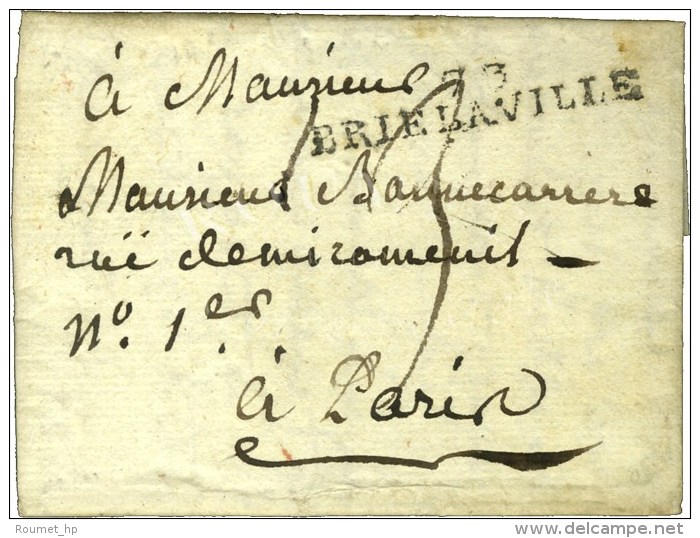 à Monsieur
73
BRIE LA VILLE
Monsieur Bonnecarrere
ruë demiromenil
N.º 1er
à Paris
Roumet_hp
delcampe.net